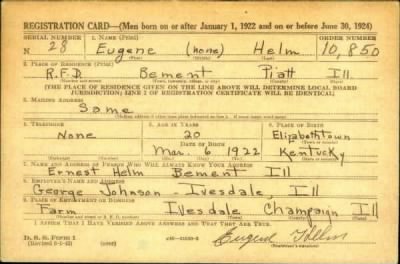 REGISTRATION CARD—(Men born on or after January 1, 1922 and on or before June 30, 1924)
SERIAL NUMBER 1. NAME (Print) ORDER NUMBER
N 28 Eugene (none) Helm 10,850
(First) (Middle) (Last)
2. PLACE OF RESIDENCE (Print)
R.F.D. Bement Piatt Ill
(Number and street) (Town, township, village, or city) (County) (State)
[THE PLACE OF RESIDENCE GIVEN ON THE LINE ABOVE WILL DETERMINE LOCAL BOARD
JURISDICTION; LINE 2 OF REGISTRATION CERTIFICATE WILL BE IDENTICAL]
3. MAILING ADDRESS
Same
4. TELEPHONE 5. AGE IN YEARS 6. PLACE OF BIRTH
None 20 Elizabethtown
DATE OF BIRTH
Mar. 6 1922 Kentucky
7. NAME AND ADDRESS OF PERSON WHO WILL ALWAYS KNOW YOUR ADDRESS
Ernest Helm Bement Ill
8. EMPLOYER'S NAME AND ADDRESS
George Johnson - Ivesdale, Ill
9. PLACE OF EMPLOYMENT OR BUSINESS
Farm Ivesdale Champaign Ill
(Number and street or R. F. D. number) (Town) (County) (State)
I AFFIRM THAT I HAVE VERIFIED ABOVE ANSWERS AND THAT THEY ARE TRUE.
D. S. S. FORM 1
Eugene Helm